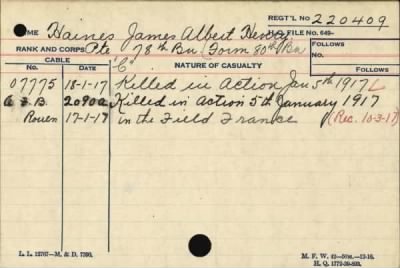 REGT'L NO 220409
NAME Haines James Albert Henry H.Q. FILE NO. 649-
RANK AND CORPS Pte 78th Bn (Form 80th Bn FOLLOWS
CABLE "C" NATURE OF CASUALTY No.
No. DATE FOLLOWS
07775 18-1-17 Killed in Action Jan 5th 1917 L
A F B 2090a Killed in Action 5th January 1917
Rouen 17-1-17 in the Field France (Rec. 10-3-17)
L. L. 12767—M. & D. 7300. M. F. W. 42—50M.—12-16.
H. Q. 1772-39-893.